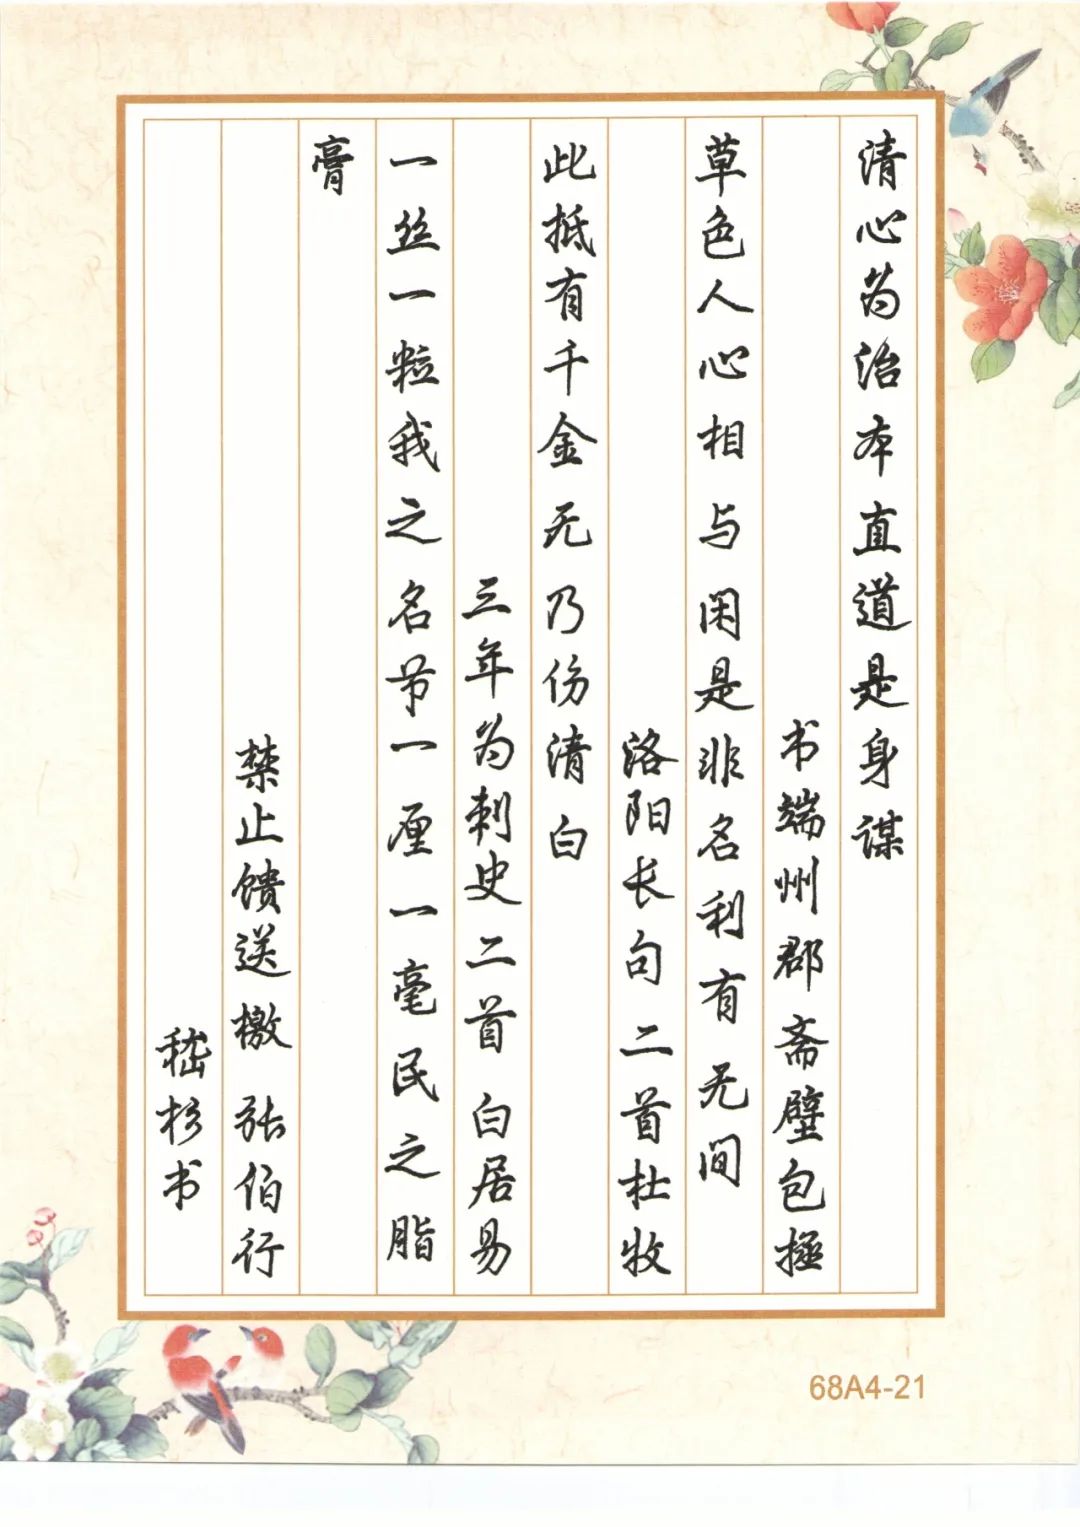 清心为治本直道是身谋
书端州郡斋壁包拯
草色人心相与闲是非名利有无间
洛阳长句二首杜牧
此抵有千金无乃伤清白
三年为刺史二首 白居易
一丝一粒我之名节一厘一毫民之脂
膏
禁止馈送檄 张伯行
嵇杉书
68A4-21